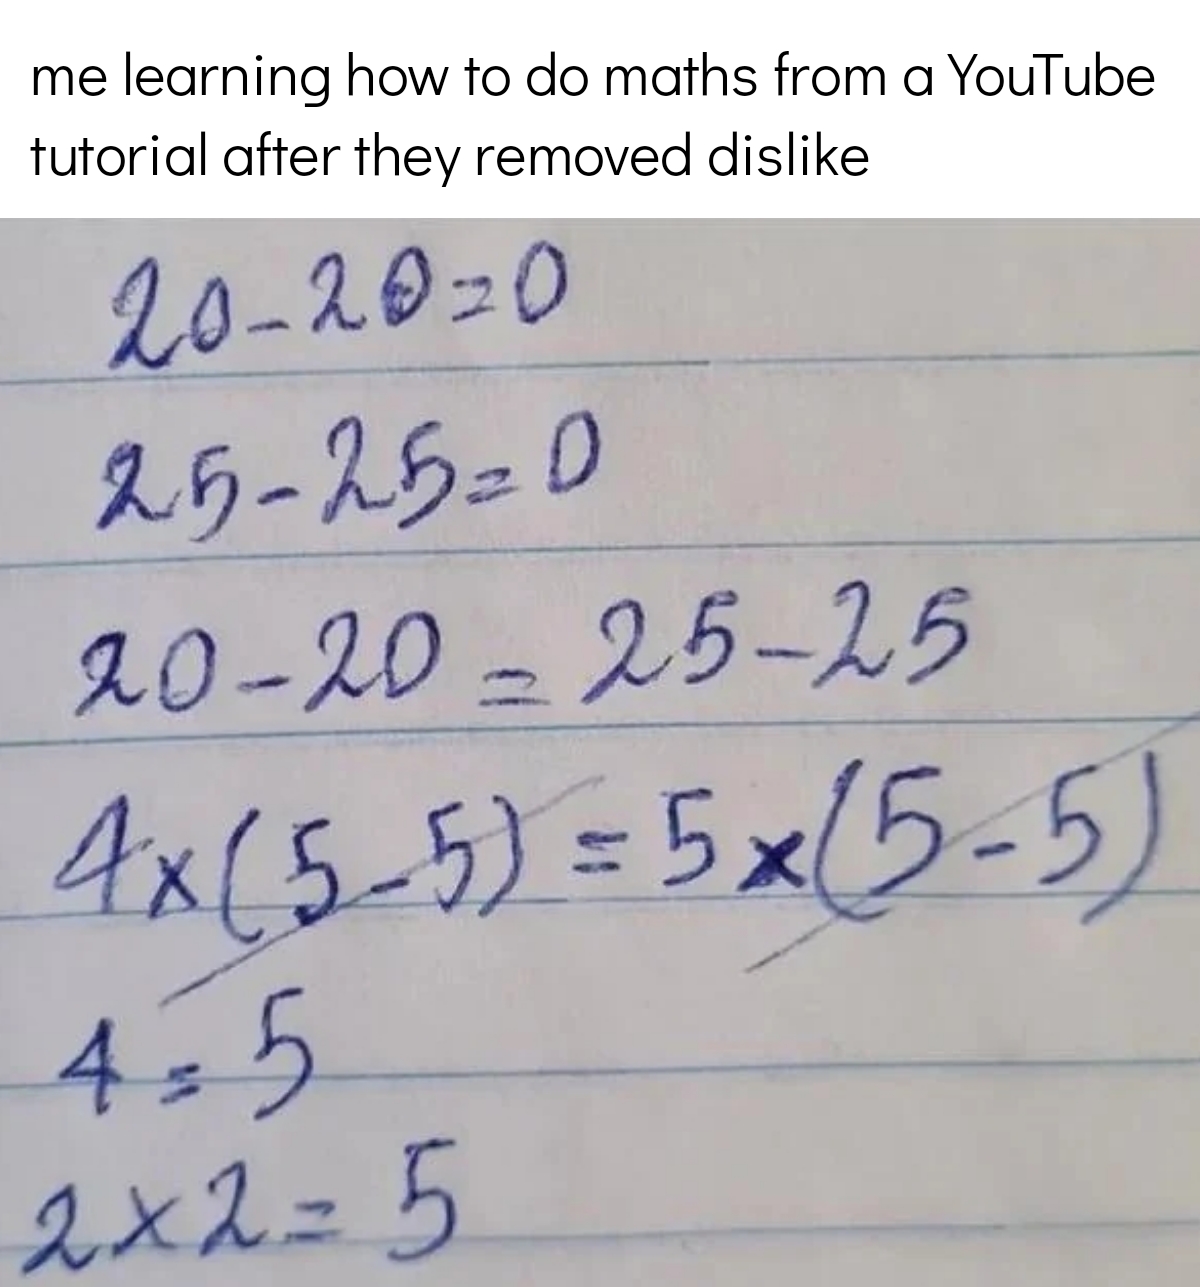 me learning how to do maths from a YouTube
tutorial after they removed dislike
20-20=0
25-25=0
20-20=25-25
4x(5-5)=5x(5-5)
4=5
2x2=5